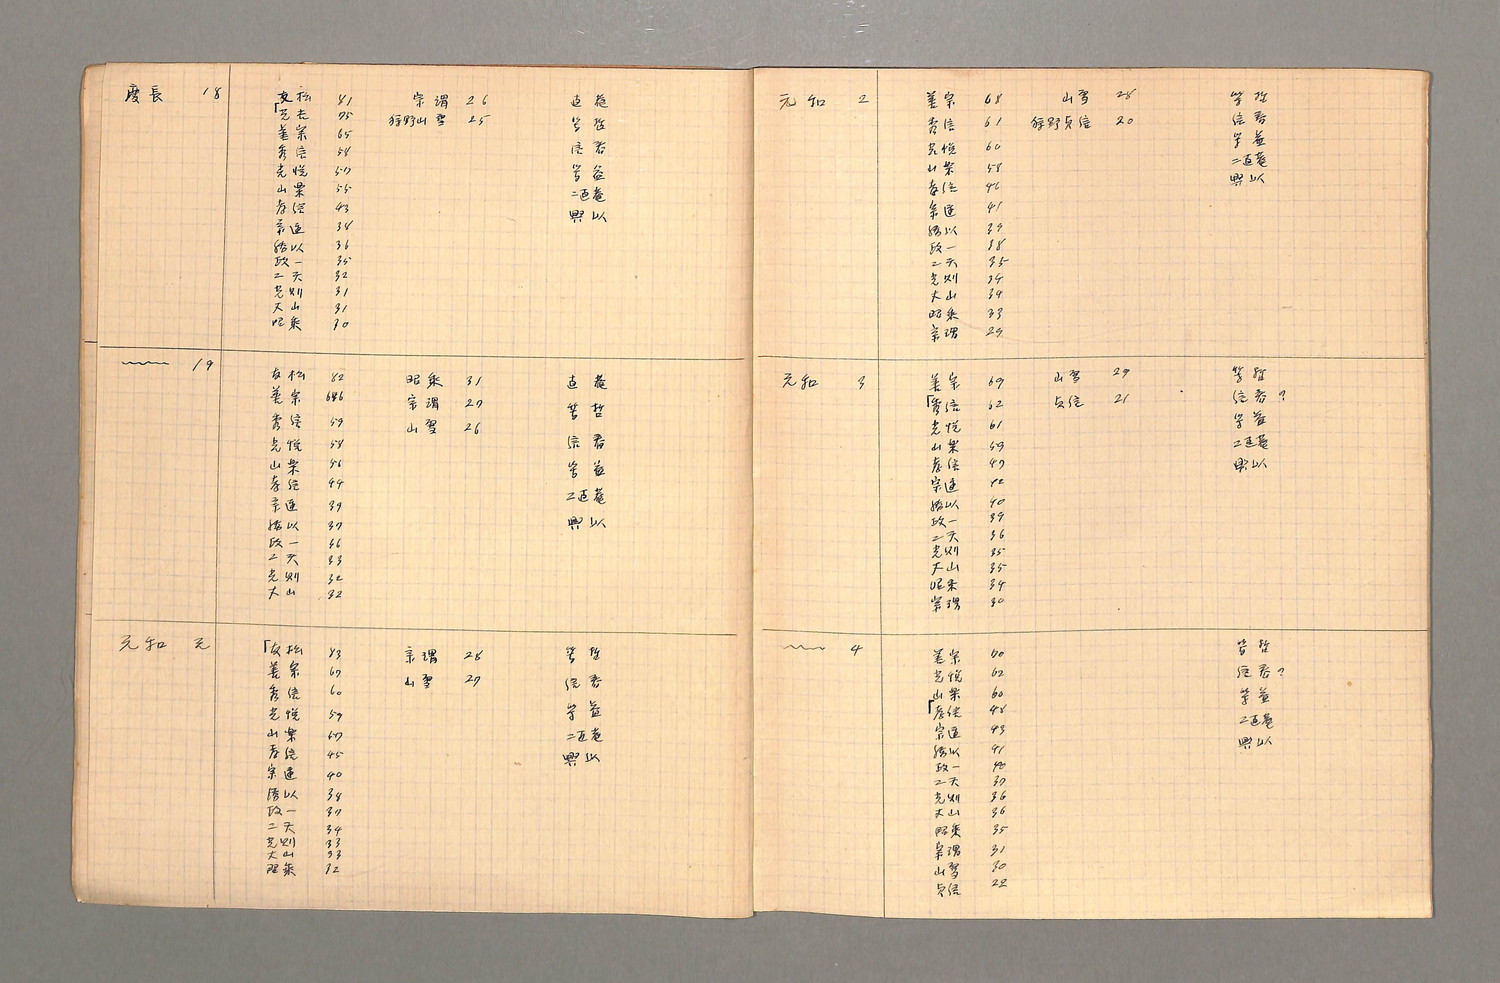 慶長 18
友松 81
「光吉 75
善宗 65
秀信 58
光悦 57
山楽 55
孝信 43
宗達 38
勝以 36
政一 35
二天 32
光則 31
大山 31
昭乗 30
宗渭 26
狩野山雪 25
直菴
等哲
信春
等益
二直菴
興以
〰 19
友松 82
善宗 66
秀信 59
光悦 58
山楽 56
孝信 44
宗達 39
勝以 37
政一 36
二天 33
光則 32
大山 32
昭乗 31
宗渭 27
山雪 26
直菴
等哲
信春
等益
二直菴
興以
元和 元
「友松 83
善宗 67
秀信 60
光悦 59
山楽 57
孝信 45
宗達 40
勝以 38
政一 37
二天 34
光則 33
大山 33
昭乗 32
宗渭 28
山雪 27
等哲
信春
等益
二直菴
興以
元和 2
善宗 68
秀信 61
光悦 60
山楽 58
孝信 46
宗達 41
勝以 39
政一 38
二天 35
光則 34
大山 34
昭乗 33
宗渭 29
山雪 28
狩野貞信 20
等哲
信春
等益
二直菴
興以
元和 3
善宗 69
「秀信 62
光悦 61
山楽 59
孝信 47
宗達 42
勝以 40
政一 39
二天 36
光則 35
大山 35
昭乗 34
宗渭 30
山雪 29
貞信 21
等哲
信春?
等益
二直菴
興以
〰 4
善宗 70
光悦 62
山楽 60
「孝信 48
宗達 43
勝以 41
政一 40
二天 37
光則 36
大山 36
昭乗 35
宗渭 31
山雪 30
貞信 22
等哲
信春?
等益
二直菴
興以